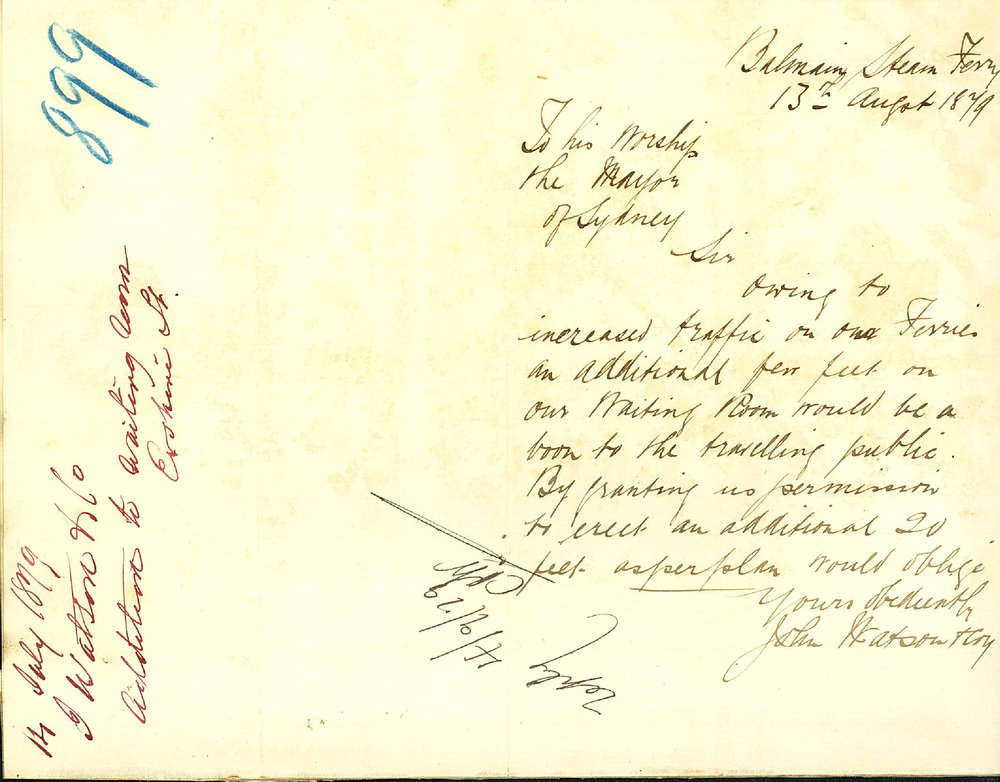 899
14 July 1879
J Watson & Co
Addition to Waiting Room
Erskine St.
Balmain Steam Ferry
13th Augst 1879
To his Worship
the Mayor
of Sydney
Sir
Owing to
increased traffic on our Ferries
an additional few feet on
our Waiting Room would be a
boon to the travelling public.
By granting us permission
to erect an additional 20
feet as per plan would oblige
Yours obediently
John Watson & Coy